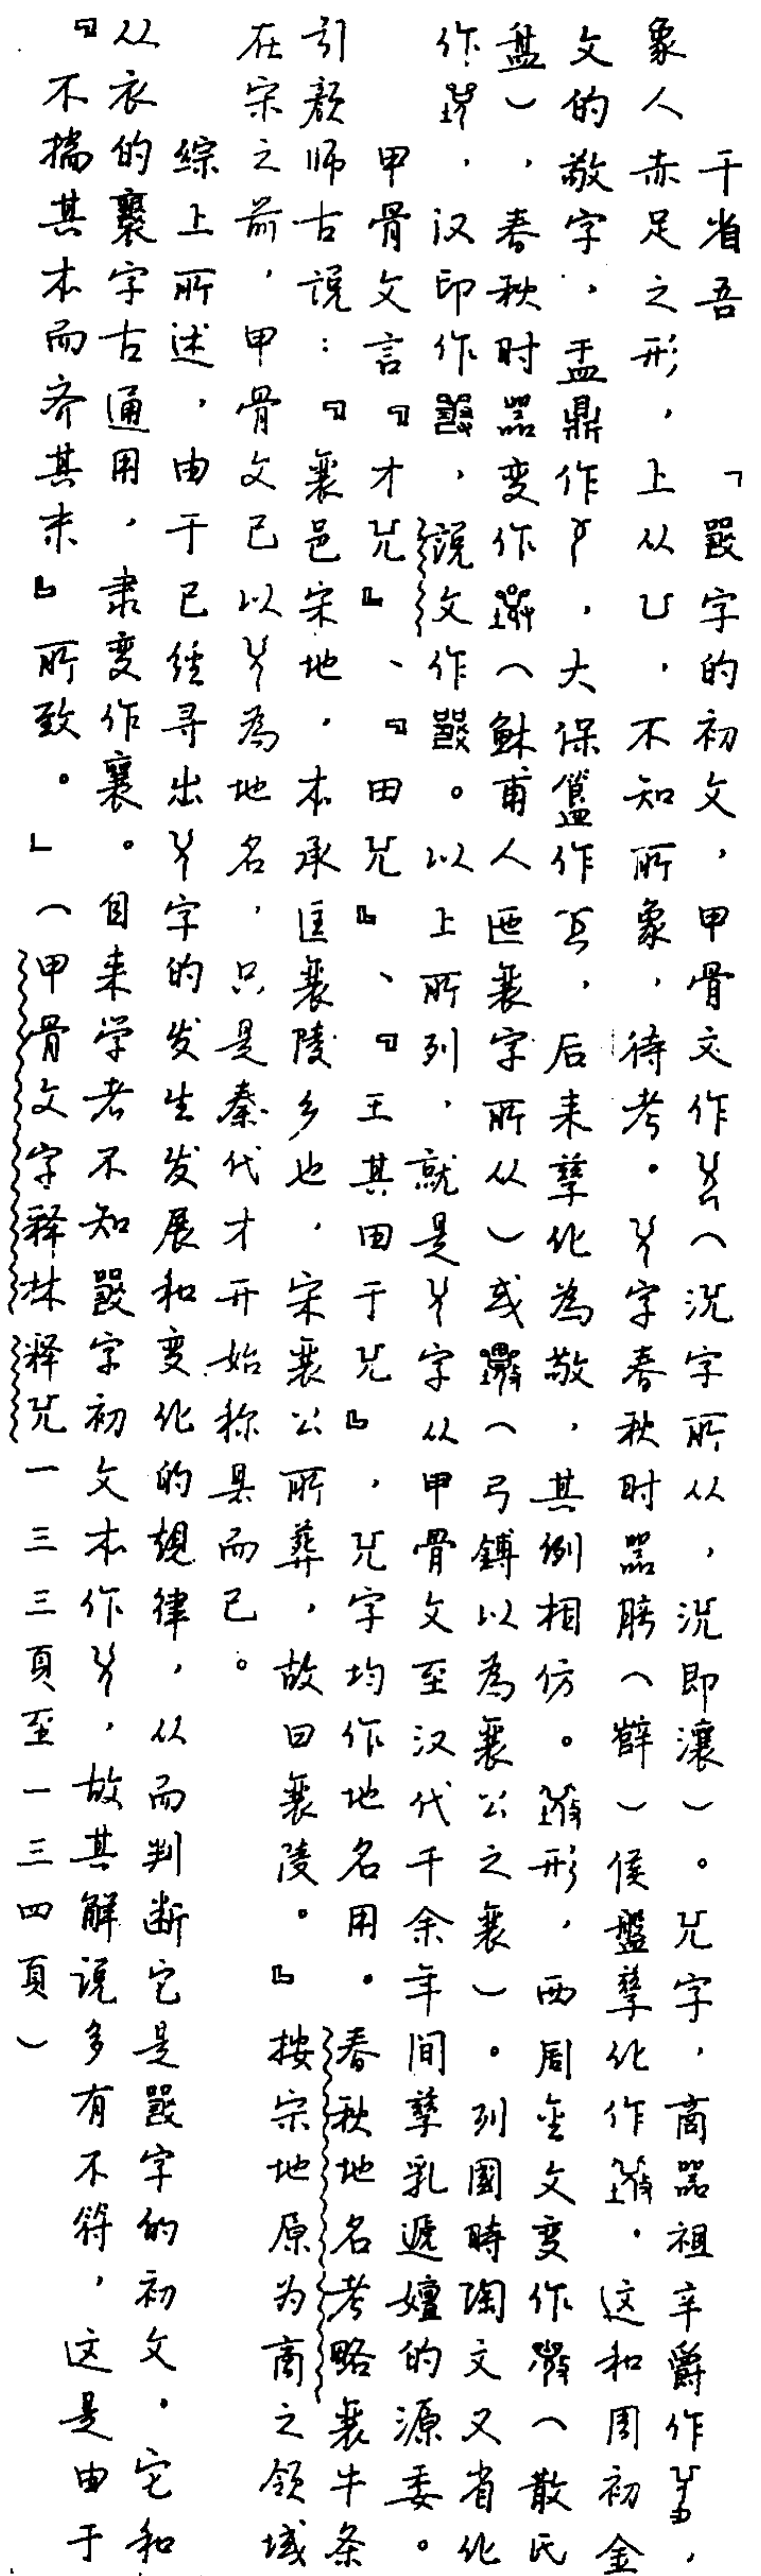 于省吾　「𤕦字的初文，甲骨文作（字所从，即瀼）。字，商器祖辛爵作，
象人赤足之形，上从凵，不知所象，待考。字春秋时器（薛）侯盤孳化作。这和周初金
文的敬字，盂鼎作，大保簋作，后来孳化為敬，其例相仿。形，西周金文变作（散氏
盤），春秋时器变作（穌甫人匜襄字所从）或（弓鎛以為襄公之襄）。列國時陶文又省化
作，汉印作，说文作𤕦。以上所列，就是字从甲骨文至汉代千余年间孳乳遞嬗的源委。
甲骨文言『才』、『田』、『王其田于』，字均作地名用。春秋地名考略襄牛条
引颜师古说：『襄邑宋地，本承匡襄陵乡也，宋襄公所葬，故曰襄陵。』按宋地原为商之领域
在宋之前，甲骨文已以為地名，只是秦代才开始称县而已。
综上所述，由于已经寻出字的发生发展和变化的规律，从而判断它是𤕦字的初文。它和
从衣的襄字古通用，隶变作襄。自来学者不知𤕦字初文本作，故其解说多有不符，这是由于
『不揣其本而齐其末』所致。」（甲骨文字释林释一三三頁至一三四頁）